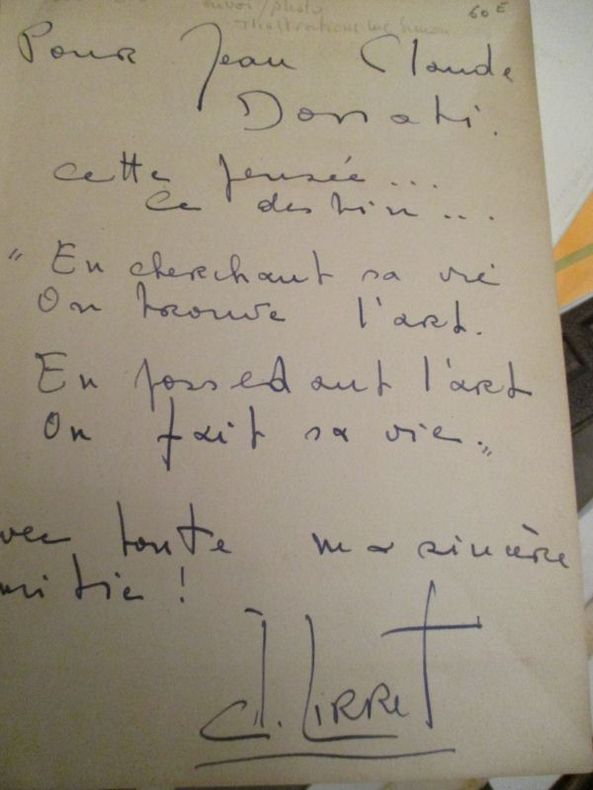 envoi/photo 60 E
illustrations
Pour Jean Claude
Donati.
cette pensée...
ce destin...
" En cherchant sa vie
On trouve l'art.
En possedant l'art
On fait sa vie."
vec toute ma sincère
mitie !
J. Lirret